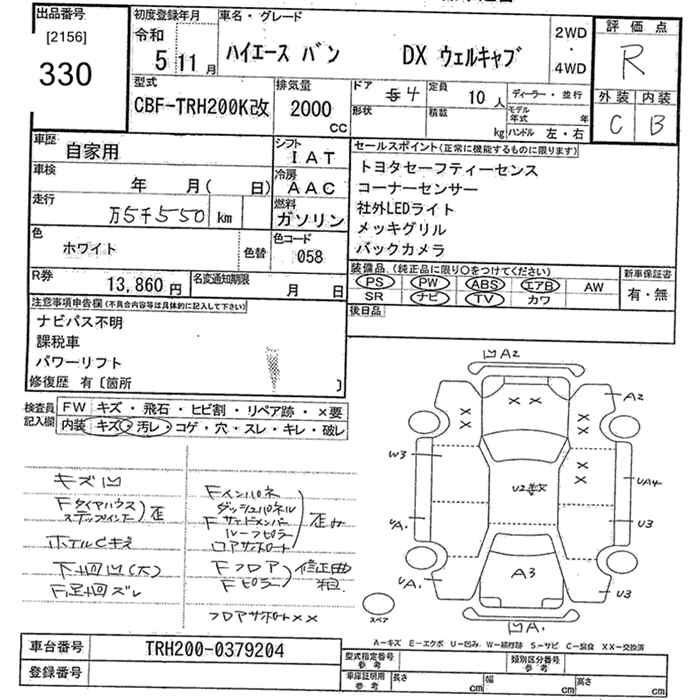 出品番号
[2156]
330
初度登録年月
令和
5 11月
車名・グレード
ハイエース バン DX ウェルキャブ
2WD
・
4WD
評価点
R
外装 内装
C B
型式
CBF-TRH200K改
排気量
2000
cc
ドア
4
形状
定員
10人
積載
kg
ディーラー・並行
モデル年式 年
ハンドル 左・右
車歴
自家用
シフト
IAT
車検
年 月( 日)
冷房
AAC
走行
km
燃料
ガソリン
色
ホワイト
色替
色コード
058
R券
13,860円
名変通知期限
月 日
セールスポイント(正常に機能するものに限ります)
トヨタセーフティーセンス
コーナーセンサー
社外LEDライト
メッキグリル
バックカメラ
装備品 (純正品に限り〇をつけてください)
新車保証書
PS PW ABS エアB AW
SR ナビ TV カワ
有・無
後日品
注意事項申告欄(不具合内容等は具体的に記入して下さい)
ナビパス不明
課税車
パワーリフト
修復歴 有〔箇所 〕
検査員
記入欄
FW キズ・飛石・ヒビ割・リペア跡・×要
内装 キズ・汚レ・コゲ・穴・スレ・キレ・破レ
キズ凹
Fタイヤハウス
ステップインナー
歪
ホイルキズ
下廻凹(大)
F足廻ズレ
Fインパネ
ダッシュパネル
Fサイドメンバー
ルーフピラー
コアサポート
歪み
Fフロア
Fピラー
修正曲
フロアサポート××
A2
A2
W3
UA4
U3
U3
A3
A1
スペア
A−キズ E−エクボ U−凹み W−補修跡 S−サビ C−腐食 XX−交換済
車台番号
TRH200-0379204
登録番号
型式指定番号
参考
類別区分番号
参考
車庫証明用
参考
長さ cm
幅 cm
高さ cm